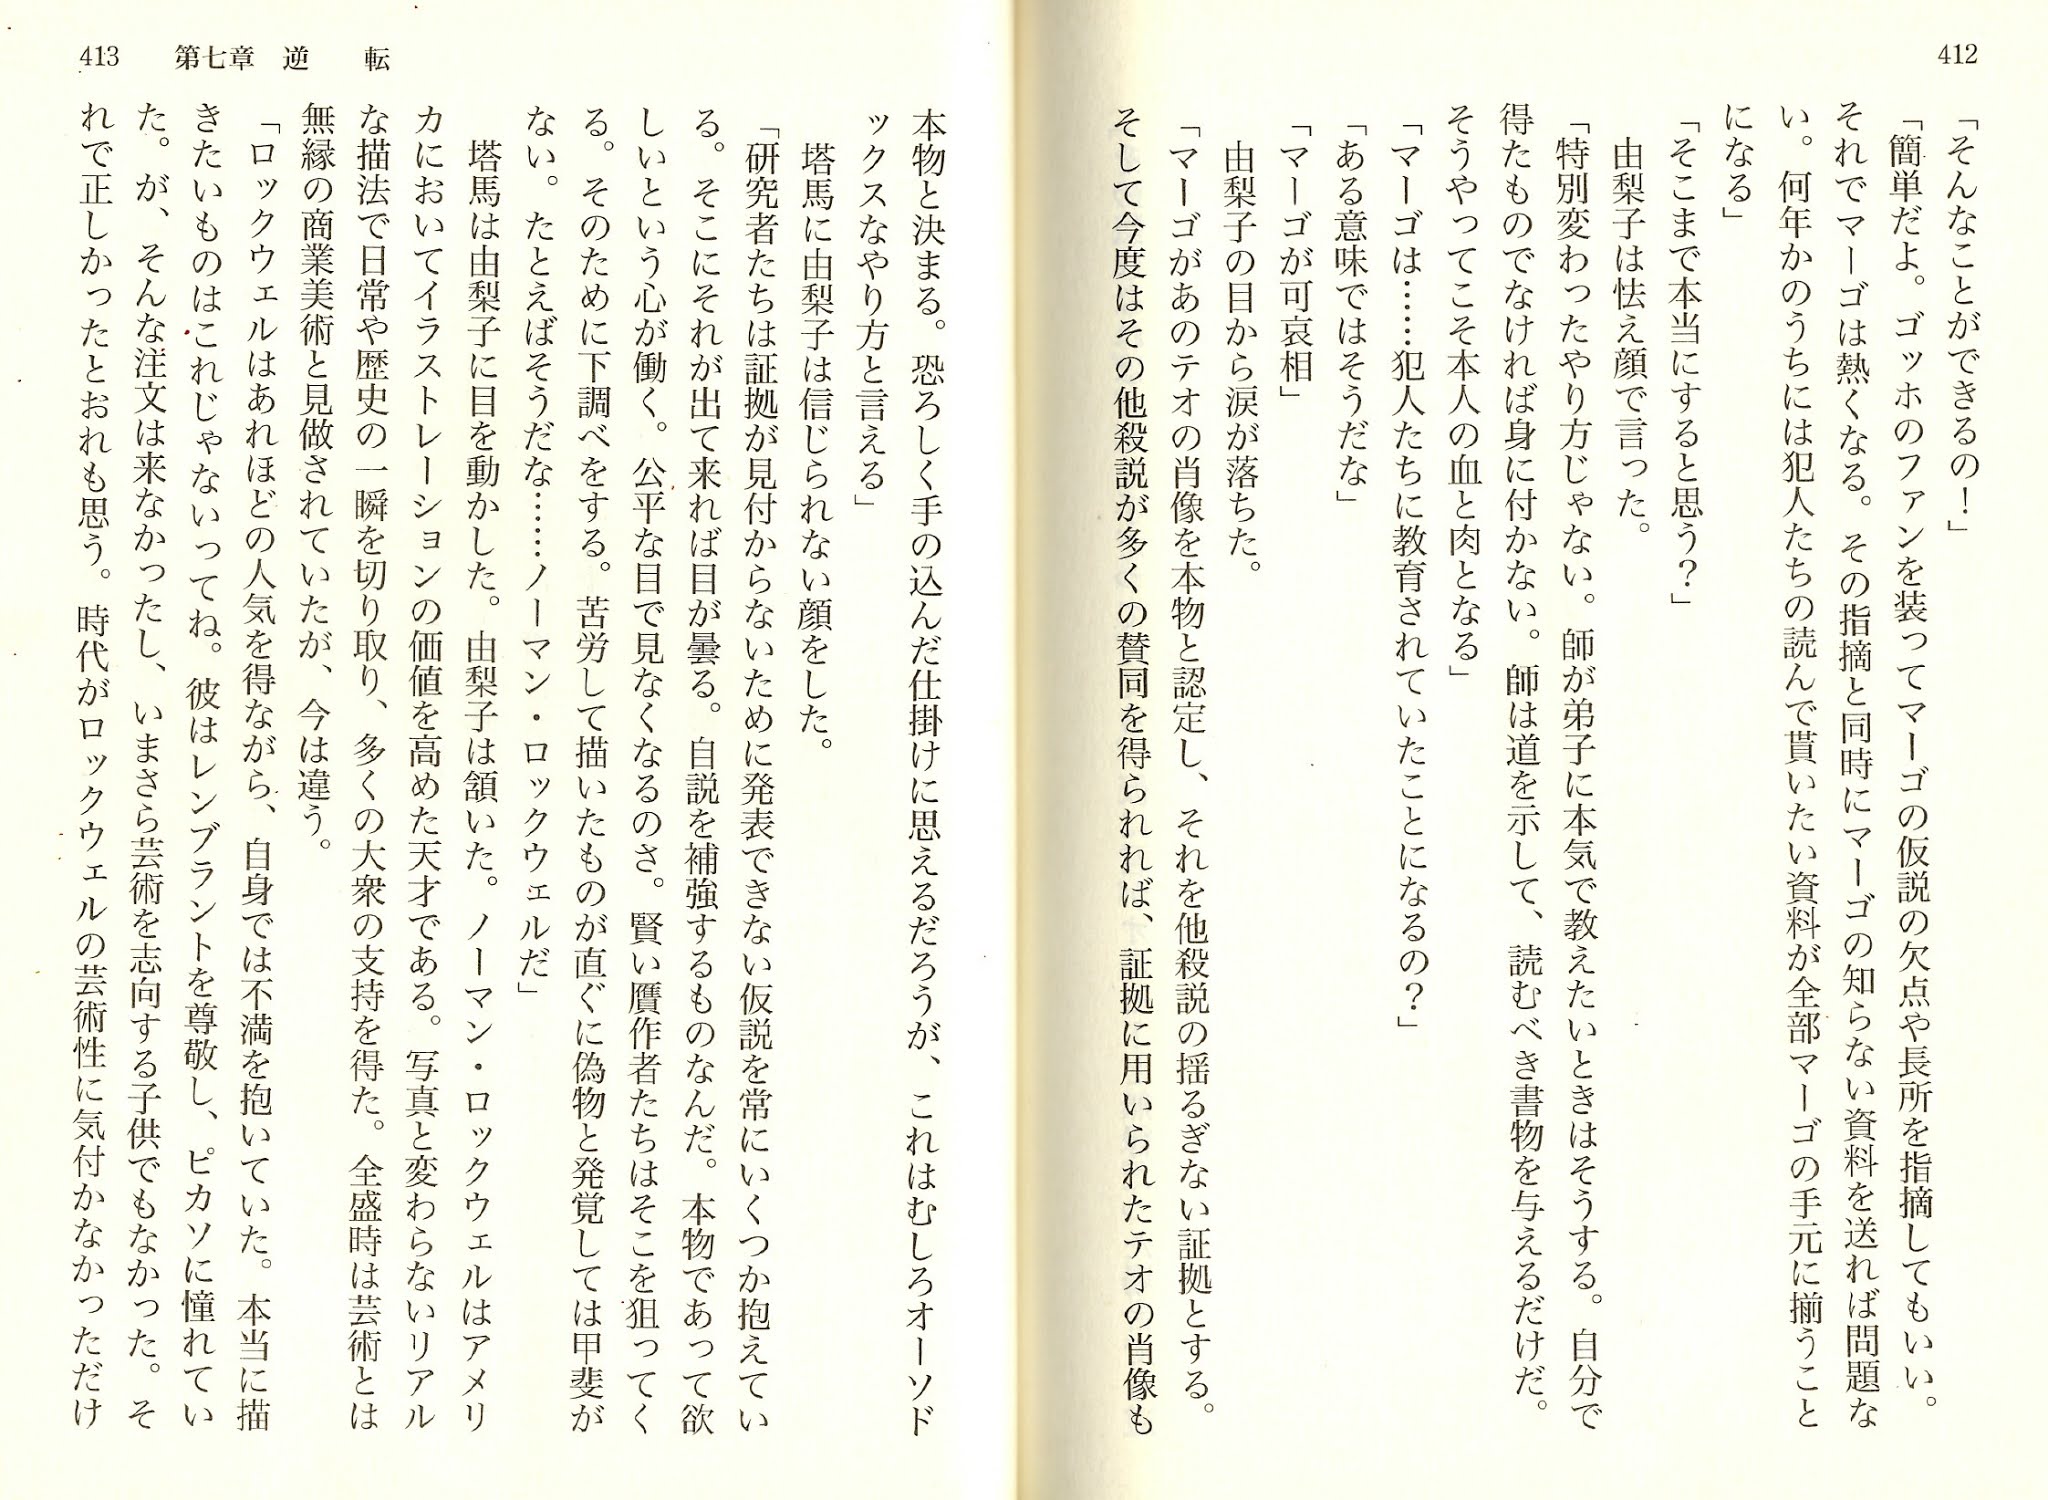 412
「そんなことができるの！」
「簡単だよ。ゴッホのファンを装ってマーゴの仮説の欠点や長所を指摘してもいい。
それでマーゴは熱くなる。その指摘と同時にマーゴの知らない資料を送れば問題な
い。何年かのうちには犯人たちの読んで貰いたい資料が全部マーゴの手元に揃うこと
になる」
「そこまで本当にすると思う？」
由梨子は怯え顔で言った。
「特別変わったやり方じゃない。師が弟子に本気で教えたいときはそうする。自分で
得たものでなければ身に付かない。師は道を示して、読むべき書物を与えるだけだ。
そうやってこそ本人の血と肉となる」
「マーゴは……犯人たちに教育されていたことになるの？」
「ある意味ではそうだな」
「マーゴが可哀相」
由梨子の目から涙が落ちた。
「マーゴがあのテオの肖像を本物と認定し、それを他殺説の揺るぎない証拠とする。
そして今度はその他殺説が多くの賛同を得られれば、証拠に用いられたテオの肖像も
413 第七章 逆 転
本物と決まる。恐ろしく手の込んだ仕掛けに思えるだろうが、これはむしろオーソド
ックスなやり方と言える」
塔馬に由梨子は信じられない顔をした。
「研究者たちは証拠が見付からないために発表できない仮説を常にいくつか抱えてい
る。そこにそれが出て来れば目が曇る。自説を補強するものなんだ。本物であって欲
しいという心が働く。公平な目で見なくなるのさ。賢い贋作者たちはそこを狙ってく
る。そのために下調べをする。苦労して描いたものが直ぐに偽物と発覚しては甲斐が
ない。たとえばそうだな……ノーマン・ロックウェルだ」
塔馬は由梨子に目を動かした。由梨子は頷いた。ノーマン・ロックウェルはアメリ
カにおいてイラストレーションの価値を高めた天才である。写真と変わらないリアル
な描法で日常や歴史の一瞬を切り取り、多くの大衆の支持を得た。全盛時は芸術とは
無縁の商業美術と見做されていたが、今は違う。
「ロックウェルはあれほどの人気を得ながら、自身では不満を抱いていた。本当に描
きたいものはこれじゃないってね。彼はレンブラントを尊敬し、ピカソに憧れてい
た。が、そんな注文は来なかったし、いまさら芸術を志向する子供でもなかった。そ
れで正しかったとおれも思う。時代がロックウェルの芸術性に気付かなかっただけ